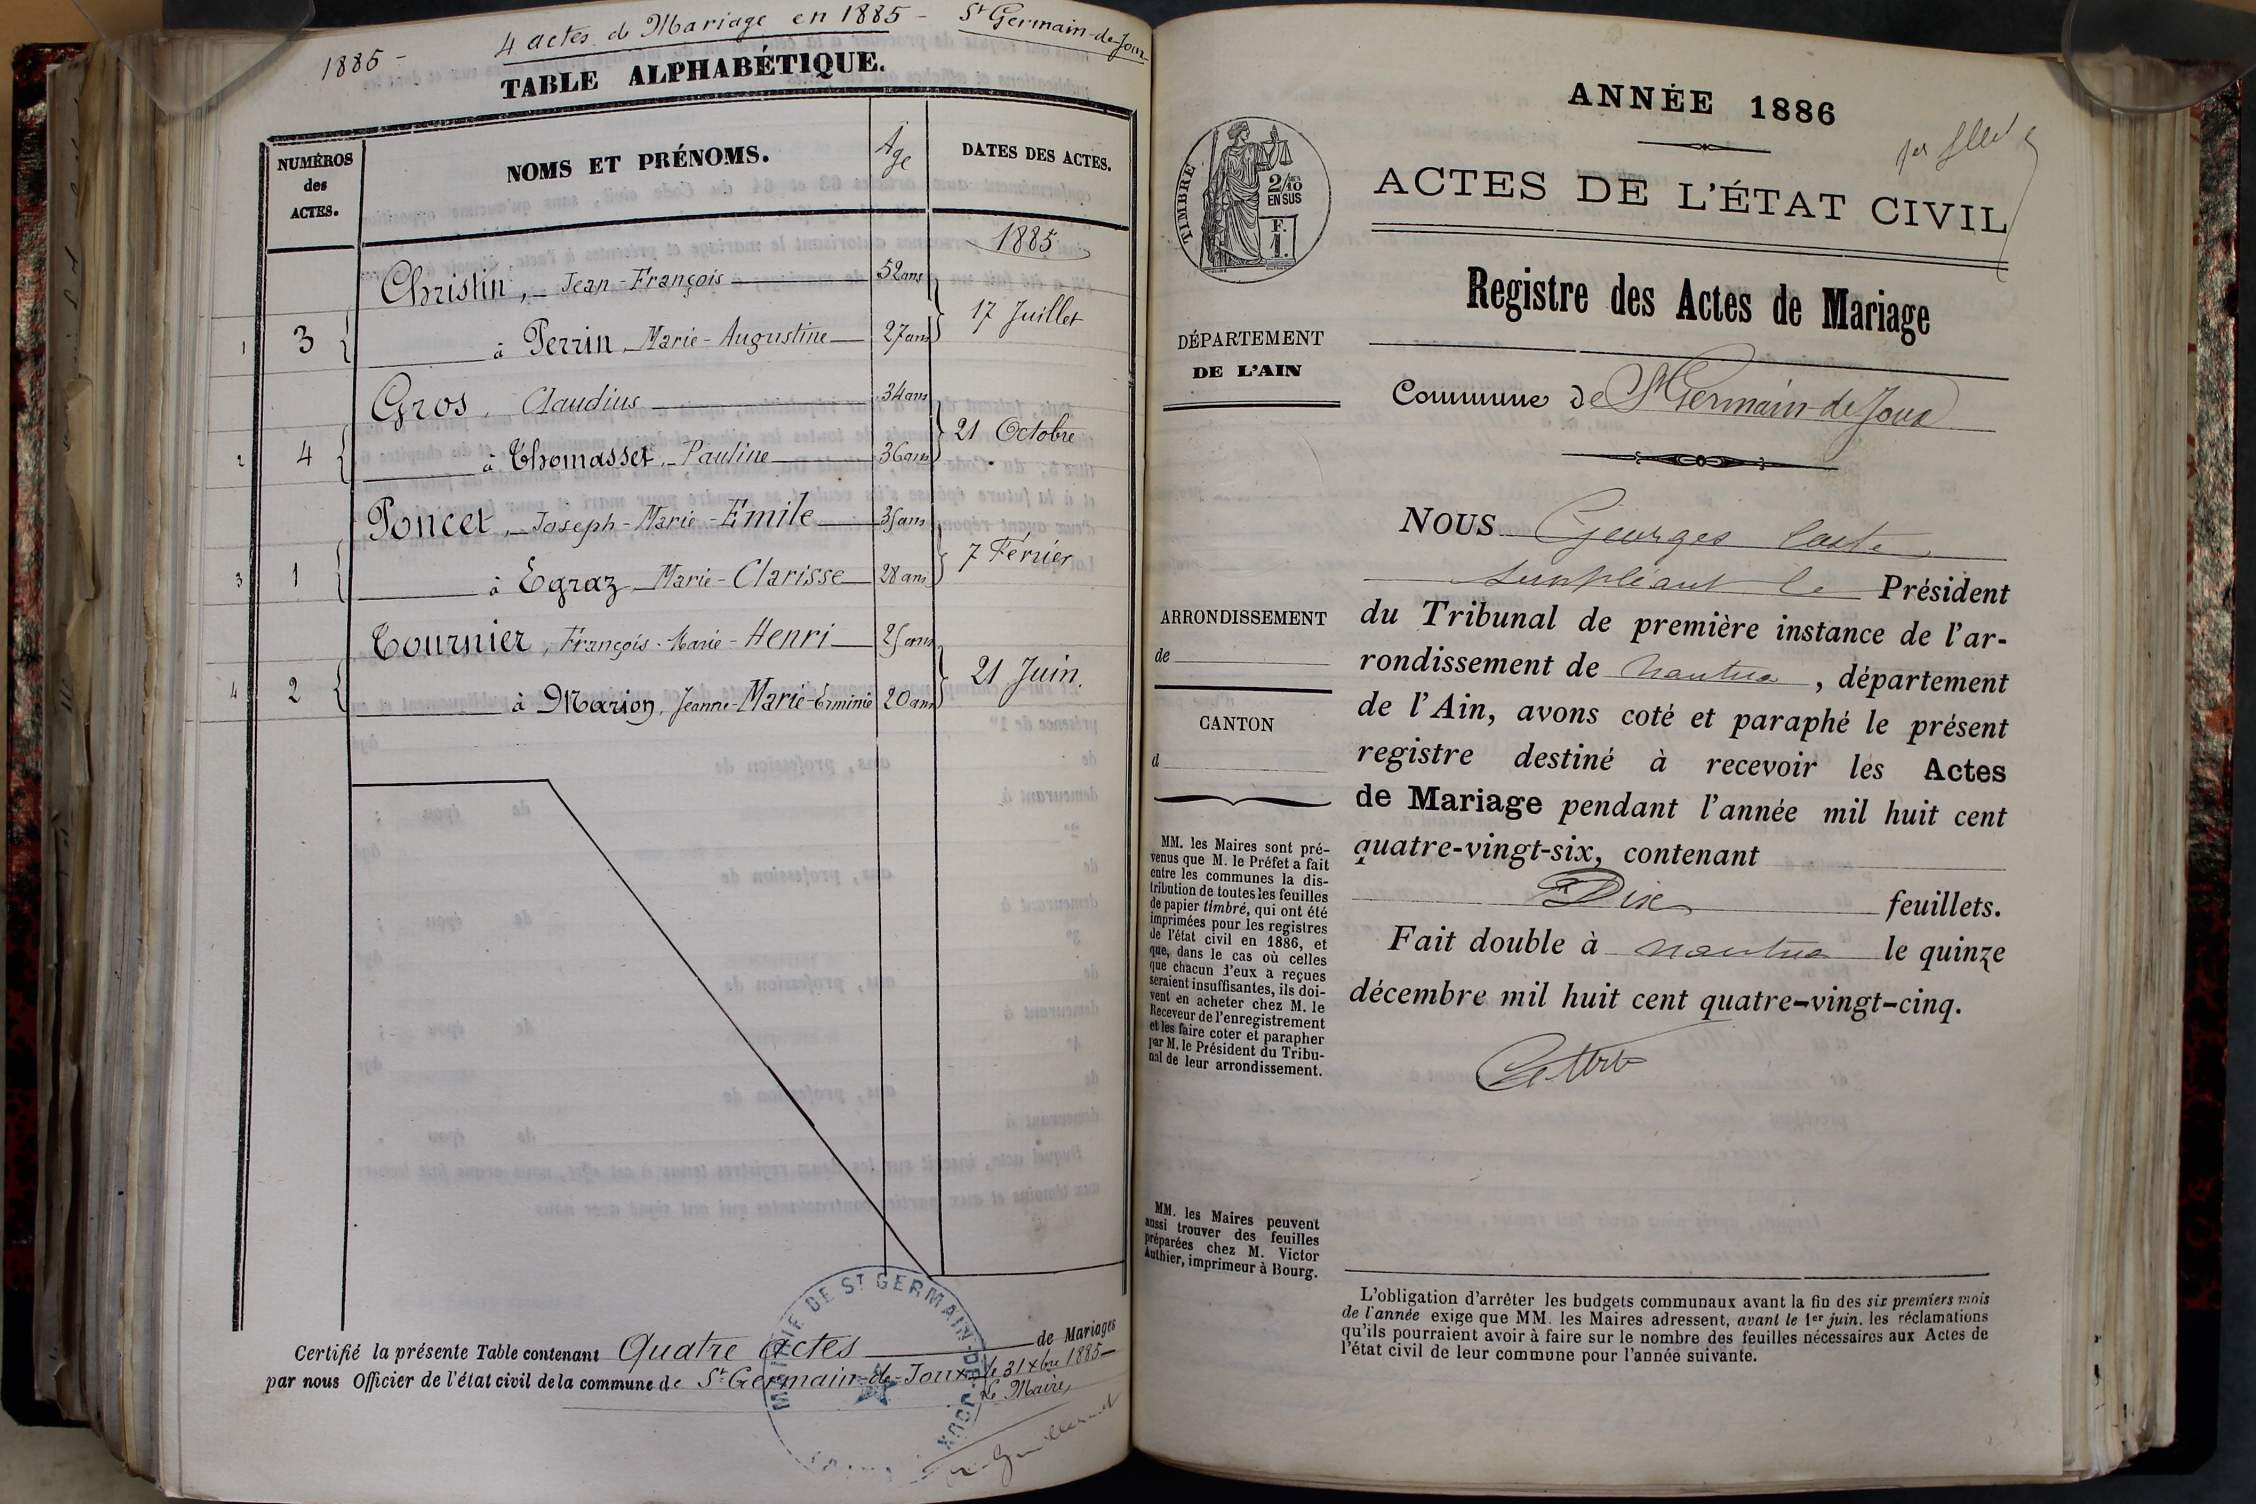 1885 -
4 actes de Mariage en 1885 - St Germain-de-Joux
TABLE ALPHABÉTIQUE.
NUMÉROS
des
ACTES.
NOMS ET PRÉNOMS.
Âge
DATES DES ACTES.
1885
Christin, Jean-François 52 ans
1 3 17 Juillet
à Perrin Marie-Augustine 27 ans
Gros, Claudius 34 ans
21 Octobre
2 4 à Thomasset, Pauline 36 ans
Poncet, Joseph-Marie-Emile 35 ans
7 Février
3 1 à Egraz Marie-Clarisse 28 ans
Tournier, François-Marie-Henri 25 ans
4 2 21 Juin.
à Marion, Jeanne-Marie-Erminie 20 ans
Certifié la présente Table contenant Quatre actes de Mariages
par nous Officier de l'état civil de la commune de St Germain-de-Joux le 31 Xbre 1885
Le Maire,
MAIRIE DE ST GERMAIN-DE-JOUX
ANNÉE 1886
ACTES DE L'ÉTAT CIVIL
TIMBRE
2/10
EN SUS
F.
1.
Registre des Actes de Mariage
DÉPARTEMENT
DE L'AIN
Commune de St Germain-de-Joux
NOUS Georges
suppléant le Président
du Tribunal de première instance de l'ar-
rondissement de Nantua, département
de l'Ain, avons coté et paraphé le présent
registre destiné à recevoir les Actes
de Mariage pendant l'année mil huit cent
quatre-vingt-six, contenant
Dix feuillets.
Fait double à Nantua le quinze
décembre mil huit cent quatre-vingt-cinq.
ARRONDISSEMENT
de
CANTON
d
MM. les Maires sont pré-
venus que M. le Préfet a fait
entre les communes la dis-
tribution de toutes les feuilles
de papier timbré, qui ont été
imprimées pour les registres
de l'état civil en 1886, et
que, dans le cas où celles
que chacun d'eux a reçues
seraient insuffisantes, ils doi-
vent en acheter chez M. le
Receveur de l'enregistrement
et les faire coter et parapher
par M. le Président du Tribu-
nal de leur arrondissement.
MM. les Maires peuvent
aussi trouver des feuilles
préparées chez M. Victor
Authier, imprimeur à Bourg.
L'obligation d'arrêter les budgets communaux avant la fin des six premiers mois
de l'année exige que MM. les Maires adressent, avant le 1er juin, les réclamations
qu'ils pourraient avoir à faire sur le nombre des feuilles nécessaires aux Actes de
l'état civil de leur commune pour l'année suivante.